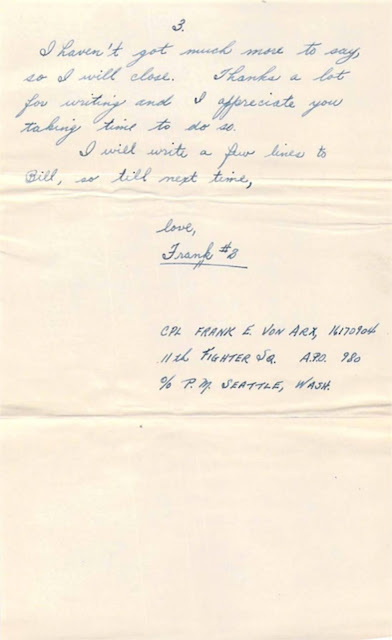 3.
I haven't got much more to say,
so I will close. Thanks a lot
for writing and I appreciate you
taking time to do so.
I will write a few lines to
Bill, so till next time,
love,
Frank #2
CPL FRANK E. VON ARX, 16170904
11th FIGHTER SQ. A.P.O. 980
c/o P.M. SEATTLE, WASH.